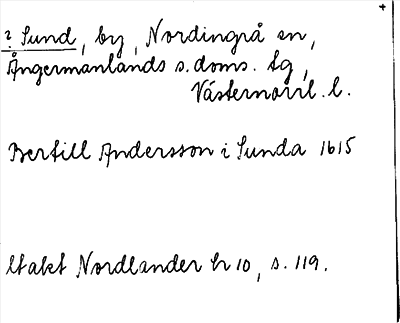 ? Sund, by, Nordingrå sn,
Ångermanlands s. doms. tg,
Västernorrl. l.
Bertill Andersson i Sunda 1615
Utakt Nordlander h 10, s. 119.